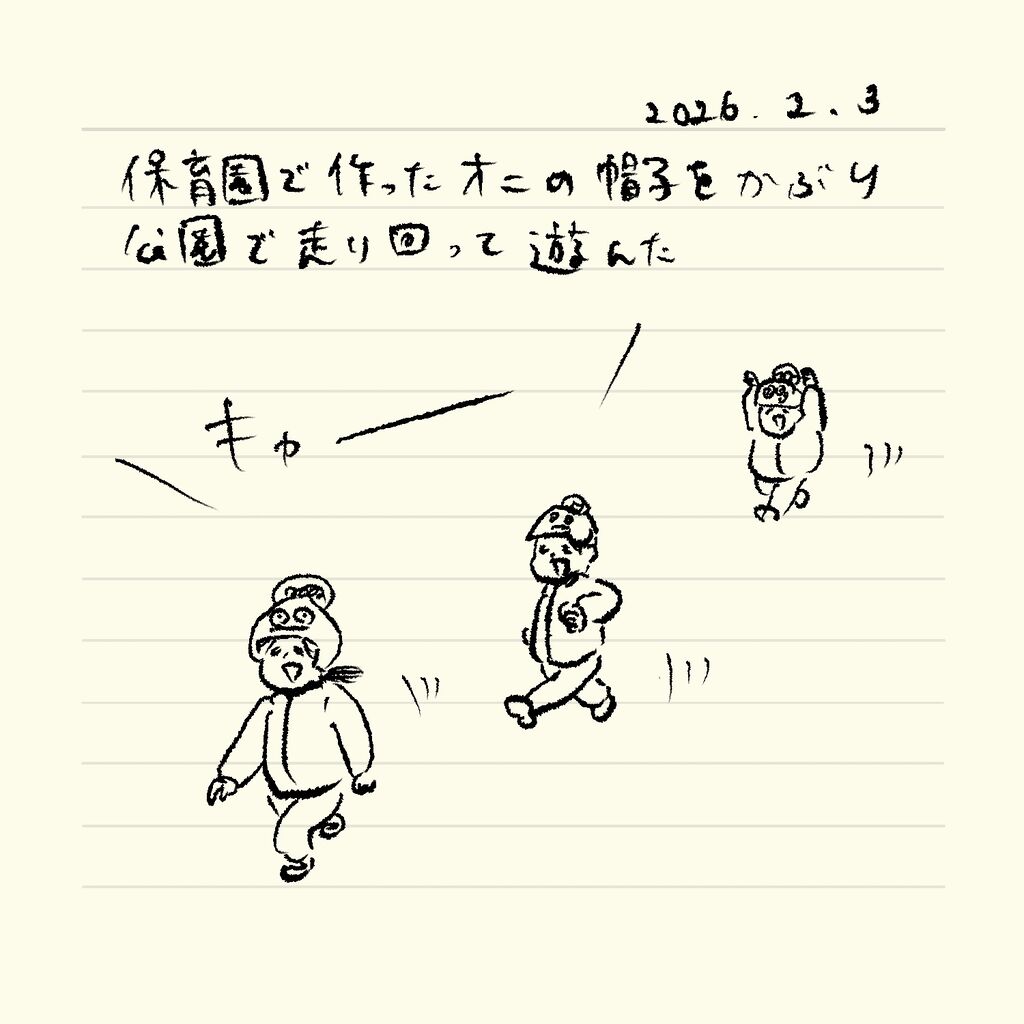 2026.2.3
保育園で作ったオニの帽子をかぶり
公園で走り回って遊んだ
キャー